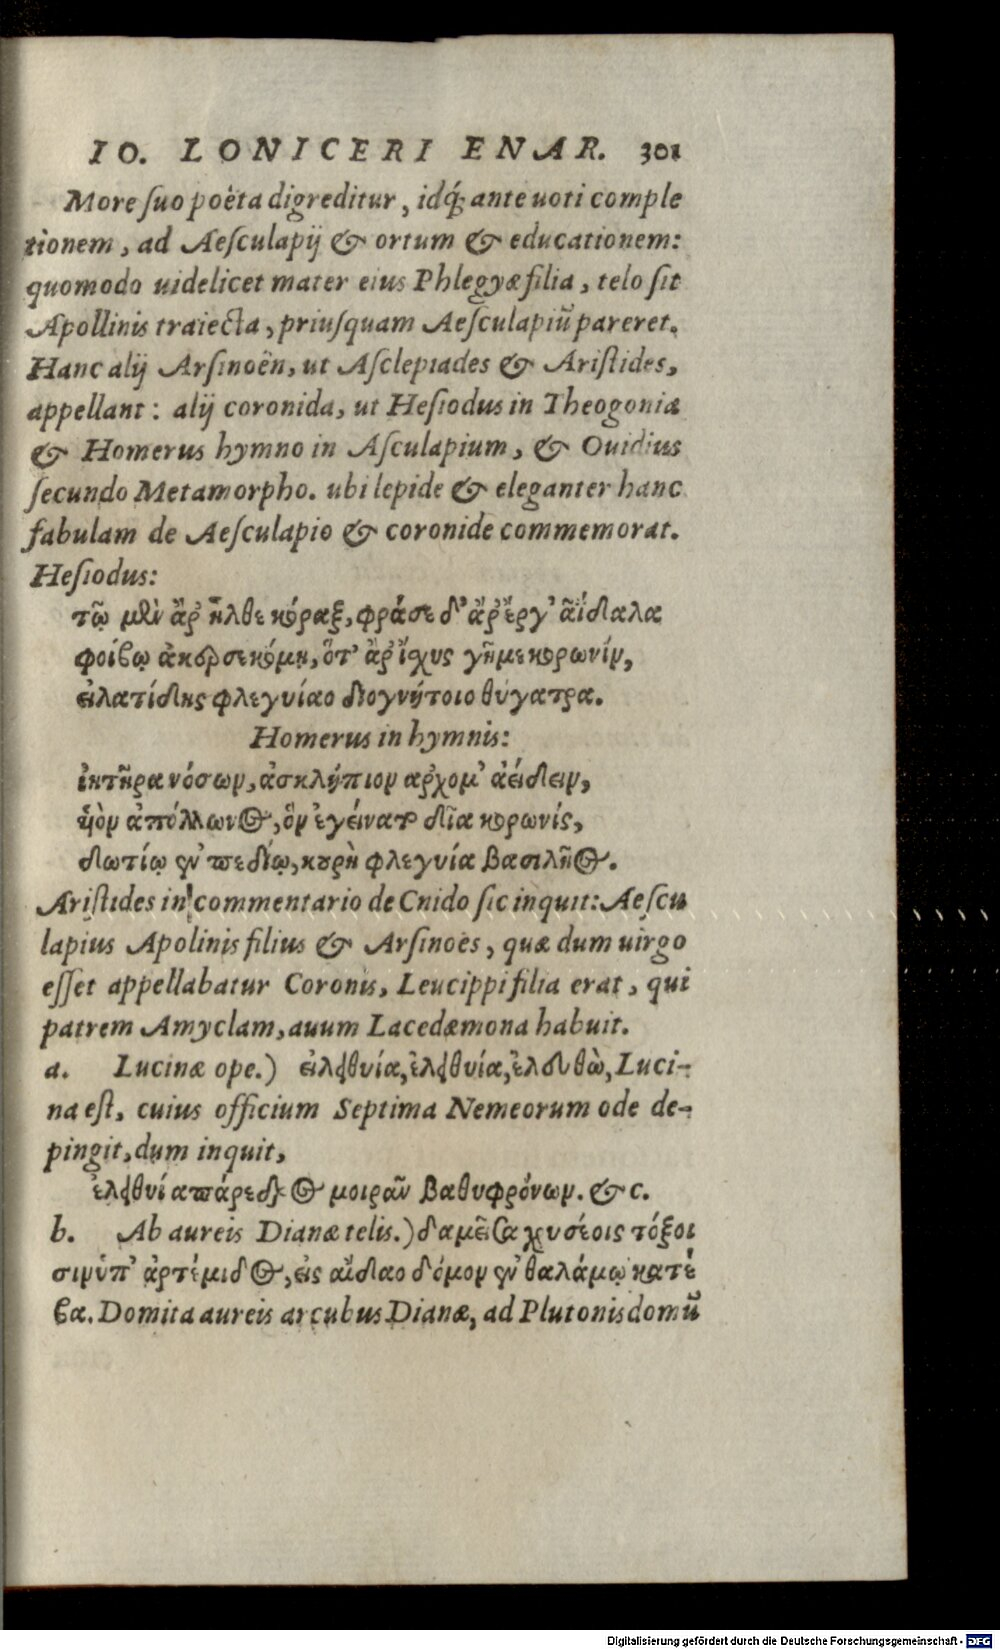 IO. LONICERI ENAR. 301
More ſuo poëta digreditur, idq́; ante uoti comple
tionem, ad Aeſculapij & ortum & educationem:
quomodo uidelicet mater eius Phlegyæ filia, telo ſit
Apollinis traiecta, priuſquam Aeſculapiũ pareret.
Hanc alij Arſinoën, ut Aſclepiades & Ariſtides,
appellant: alij coronida, ut Heſiodus in Theogonia
& Homerus hymno in Aſculapium, & Ouidius
ſecundo Metamorpho. ubi lepide & eleganter hanc
fabulam de Aeſculapio & coronide commemorat.
Heſiodus:
τῷ μὲν ἂρ ἦλθε κόραξ, φράσε δ' ἂρ ἔργ' ἀΐδιαλα
φοίβῳ ἀκερσεκόμῃ, ὅτ' ἂρ ἴχυς γῆμε κορωνίν,
εἰλατίδης φλεγυίαο διογνήτοιο θύγατρα.
Homerus in hymnis:
ἰητῆρα νόσων, ἀσκλήπιον αρχομ' ἀείδειν,
ἱὸν ἀπόλλωνος, ὃν ἐγείνατο δῖα κορωνίς,
δωτίῳ ἐν πεδίῳ, κούρη φλεγυία βασιλῆος.
Ariſtides in commentario de Cnido ſic inquit: Aeſcu
lapius Apolinis filius & Arſinoes, quæ dum uirgo
eſſet appellabatur Coronis, Leucippi filia erat, qui
patrem Amyclam, auum Lacedæmona habuit.
a. Lucinæ ope.) εἰλευθυία, ἐλευθυία, ἐλεύθω, Luci-
na eſt, cuius officium Septima Nemeorum ode de-
pingit, dum inquit,
ἐλευθυία πάρεδρος μοιρᾶν βαθυφρόνων. & c.
b. Ab aureis Dianæ telis.) δαμεῖσα χυσέοις τόξοι
σιν ὑπ' ἀρτέμιδος, εἰς αΐδαο δόμον ἐν θαλάμῳ κατέ
βα. Domita aureis arcubus Dianæ, ad Plutonis domũ
Digitalisierung gefördert durch die Deutsche Forschungsgemeinschaft - DFG